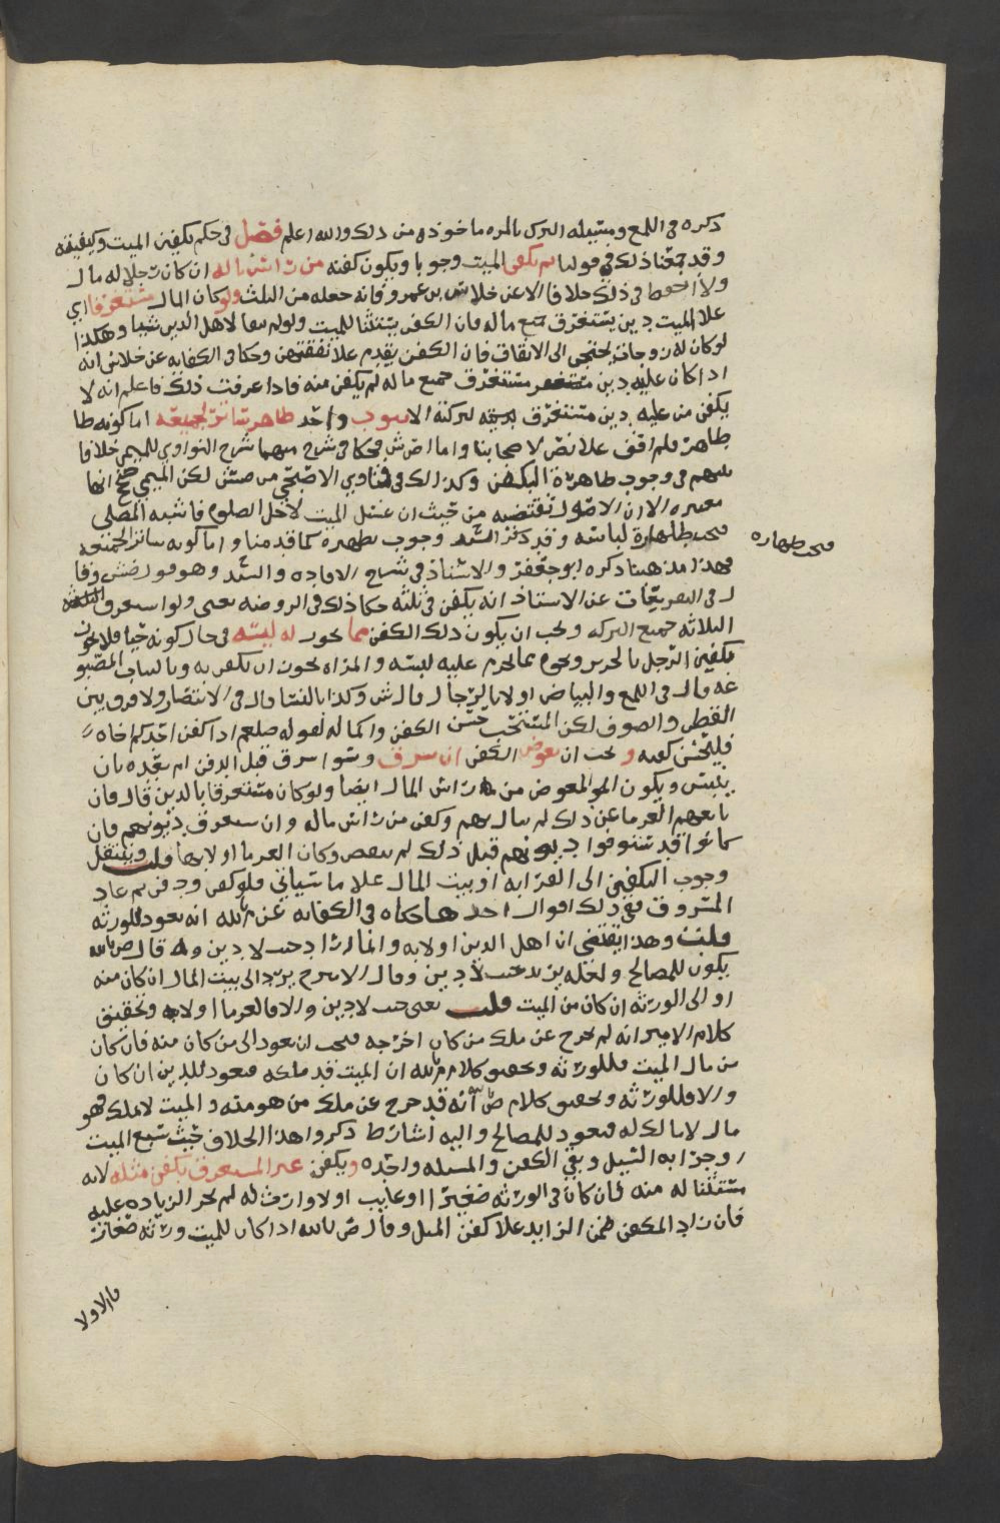 ذكره في اللمع ومسله البرك بالمره ماخوذه من ذلك والله اعلم فصل في حكم تكفين الميت وكيفيته
وقد جمعنا ذلك في قولنا ثم يكفن الميت وجوبا ويكون كفنه من راس ماله ان كان رجلا له مال
ولا احفظ في ذلك خلافا الا عن خلاس بن عمرو فانه جعله من الثلث ولو كان المال مستغرقا اي
علا الميت دين يستغرق جميع ماله فان الكفن يستثنا للميت ولو لم يبقا لاهل الدين شيا وهكذا
لو كان له زوجات يحتجن الى الانفاق فان الكفن يقدم علا نفقتهن وحكا في الكفايه عن خلاس انه
اذا كان عليه دين مستغرق جميع ماله لم يكفن منه فاذا عرفت ذلك فاعلم انه لا
يكفن من عليه دين مستغرق لتركته الا بثوب واحد طاهر ساتر لجميعه اما كونه طا
طاهر فلم اقف علا نص لاصحابنا واما اص ش فحكا في شرح منهما شرح النواوي للميمي خلافا
بينهم في وجوب طاهرة الكفن وكذلك في فتاوي الاصبحي من صش لكن الميمي صحح انها
معتبره الا ان الاصول تقتضيه من حيث ان غسل الميت لاجل الصلوه فاشبه المصلى
فيجب طهارة لباسه وقد ذكر السيد وجوب تطهره كما قدمنا واما كونه ساتر لجميعه
فيجب طهاره
فهذا مذهبنا ذكره ابو جعفر والاستاذ في شرح الافاده والسيد وهو قول ض ش وقا
ل في التفريعات عن الاستاذ انه يكفن في ثلثه حكا ذلك في الروضه يعني ولو استغرق الثلثه
الثلاثه جميع التركه ويجب ان يكون ذلك الكفن مما يجوز له لبسه في حال كونه حيا فلا يجوز
تكفين الرجل بالحرير ونحوه مما يحرم عليه لبسه والمراه يجوز ان تكفن به وبالثياب المصبو
غه قال في اللمع والبياض اولا بالرجال قال ش وكذا بالنسا قال في الانتصار ولا فرق بين
القطن والصوف لكن المستحب حسن الكفن واكماله لقوله صلعم اذا كفن احدكم اخاه
فليحسن كفنه ويجب ان يعوض الكفن ان سرق وسوا سرق قبل الدفن ام بعده بان
ينبش ويكون المعوض من راس المال ايضا ولو كان مستغرقا بالدين قال فان
مانعهم الغرما عن ذلك لم يبال بهم وكفن من راس ماله وان استغرق ديونهم فان
كانوا قد استوفوا ديونهم قبل ذلك لم ينقض وكان الغرما اولا بها قلت وينتقل
وجوب التكفين الى القرابه او بيت المال علا ما سياتي فلو كفن ودفن ثم عاد
المسروق ففي ذلك اقوال احدها حكاه في الكفايه عن م بالله انه يعود للورثه
قلت وهذا يقتضي ان اهل الدين اولا به وانما اراد حيث لا دين وله قال ص بالله
يكون للمصالح ولعله يريد حيث لا دين وقال الامير ح يرد الى بيت المال ان كان منه
او الى الورثه ان كان من الميت قلت يعني حيث لا دين والا فالغرما اولا به وتحقيق
كلام الامير انه لم يخرج عن ملك من كان اخرجه فيجب ان يعود الى من كان منه فان كان
من مال الميت فللورثه وتحقيق كلام م بالله ان الميت قد ملكه فيعود للدين ان كان
والا فللورثه وتحقيق كلام ص بالله انه قد خرج عن ملك من هو منه والميت لا يملك فهو
مال لا مالك له فيعود للمصالح واليه اشار ط ذكروا هذا الخلاف حيث سبع الميت
او جرا به السيل وبقي الكفن والمسله واحده ويكفن غير المستغرق بكفن مثله لانه
مستثنا له منه فان كان في الورثه صغيرا او غايب او لا وارث له لم تجز الزياده عليه
فان زاد المكفن ضمن الزايد علا كفن المثل وقال ص بالله اذا كان للميت ورثه صغار
فالاولا